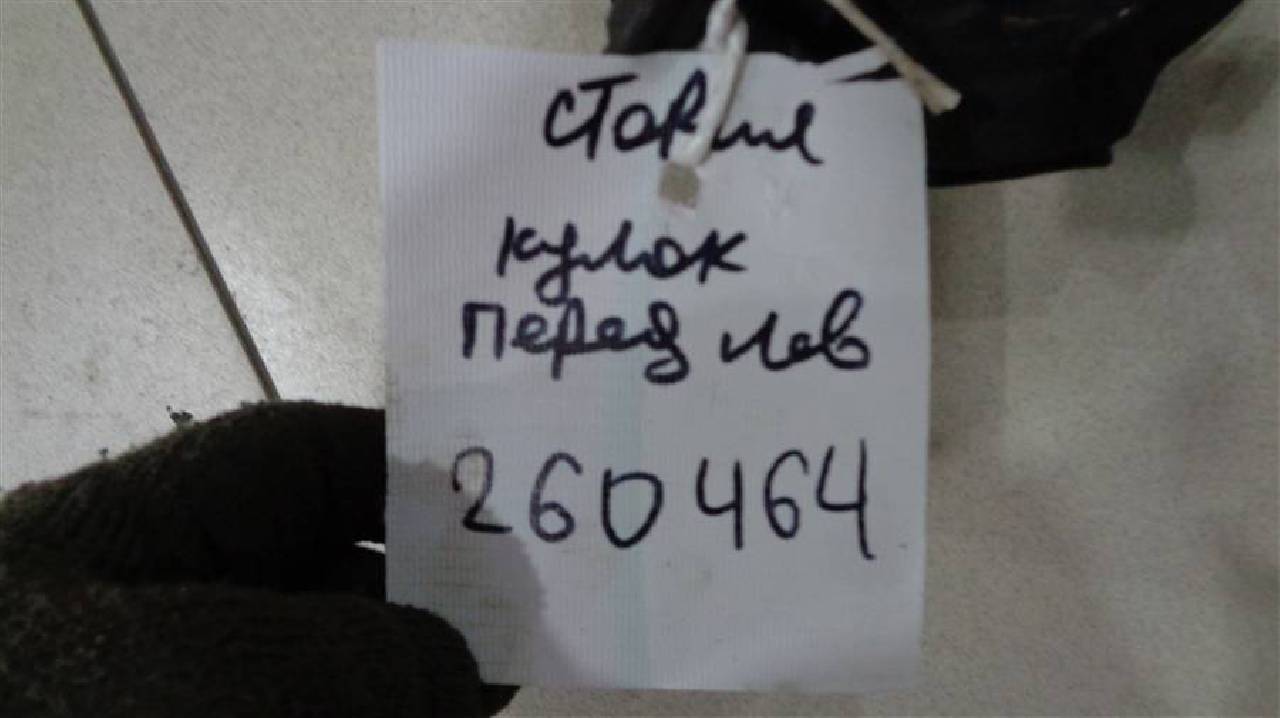 стория
кулок
перед лев
260464